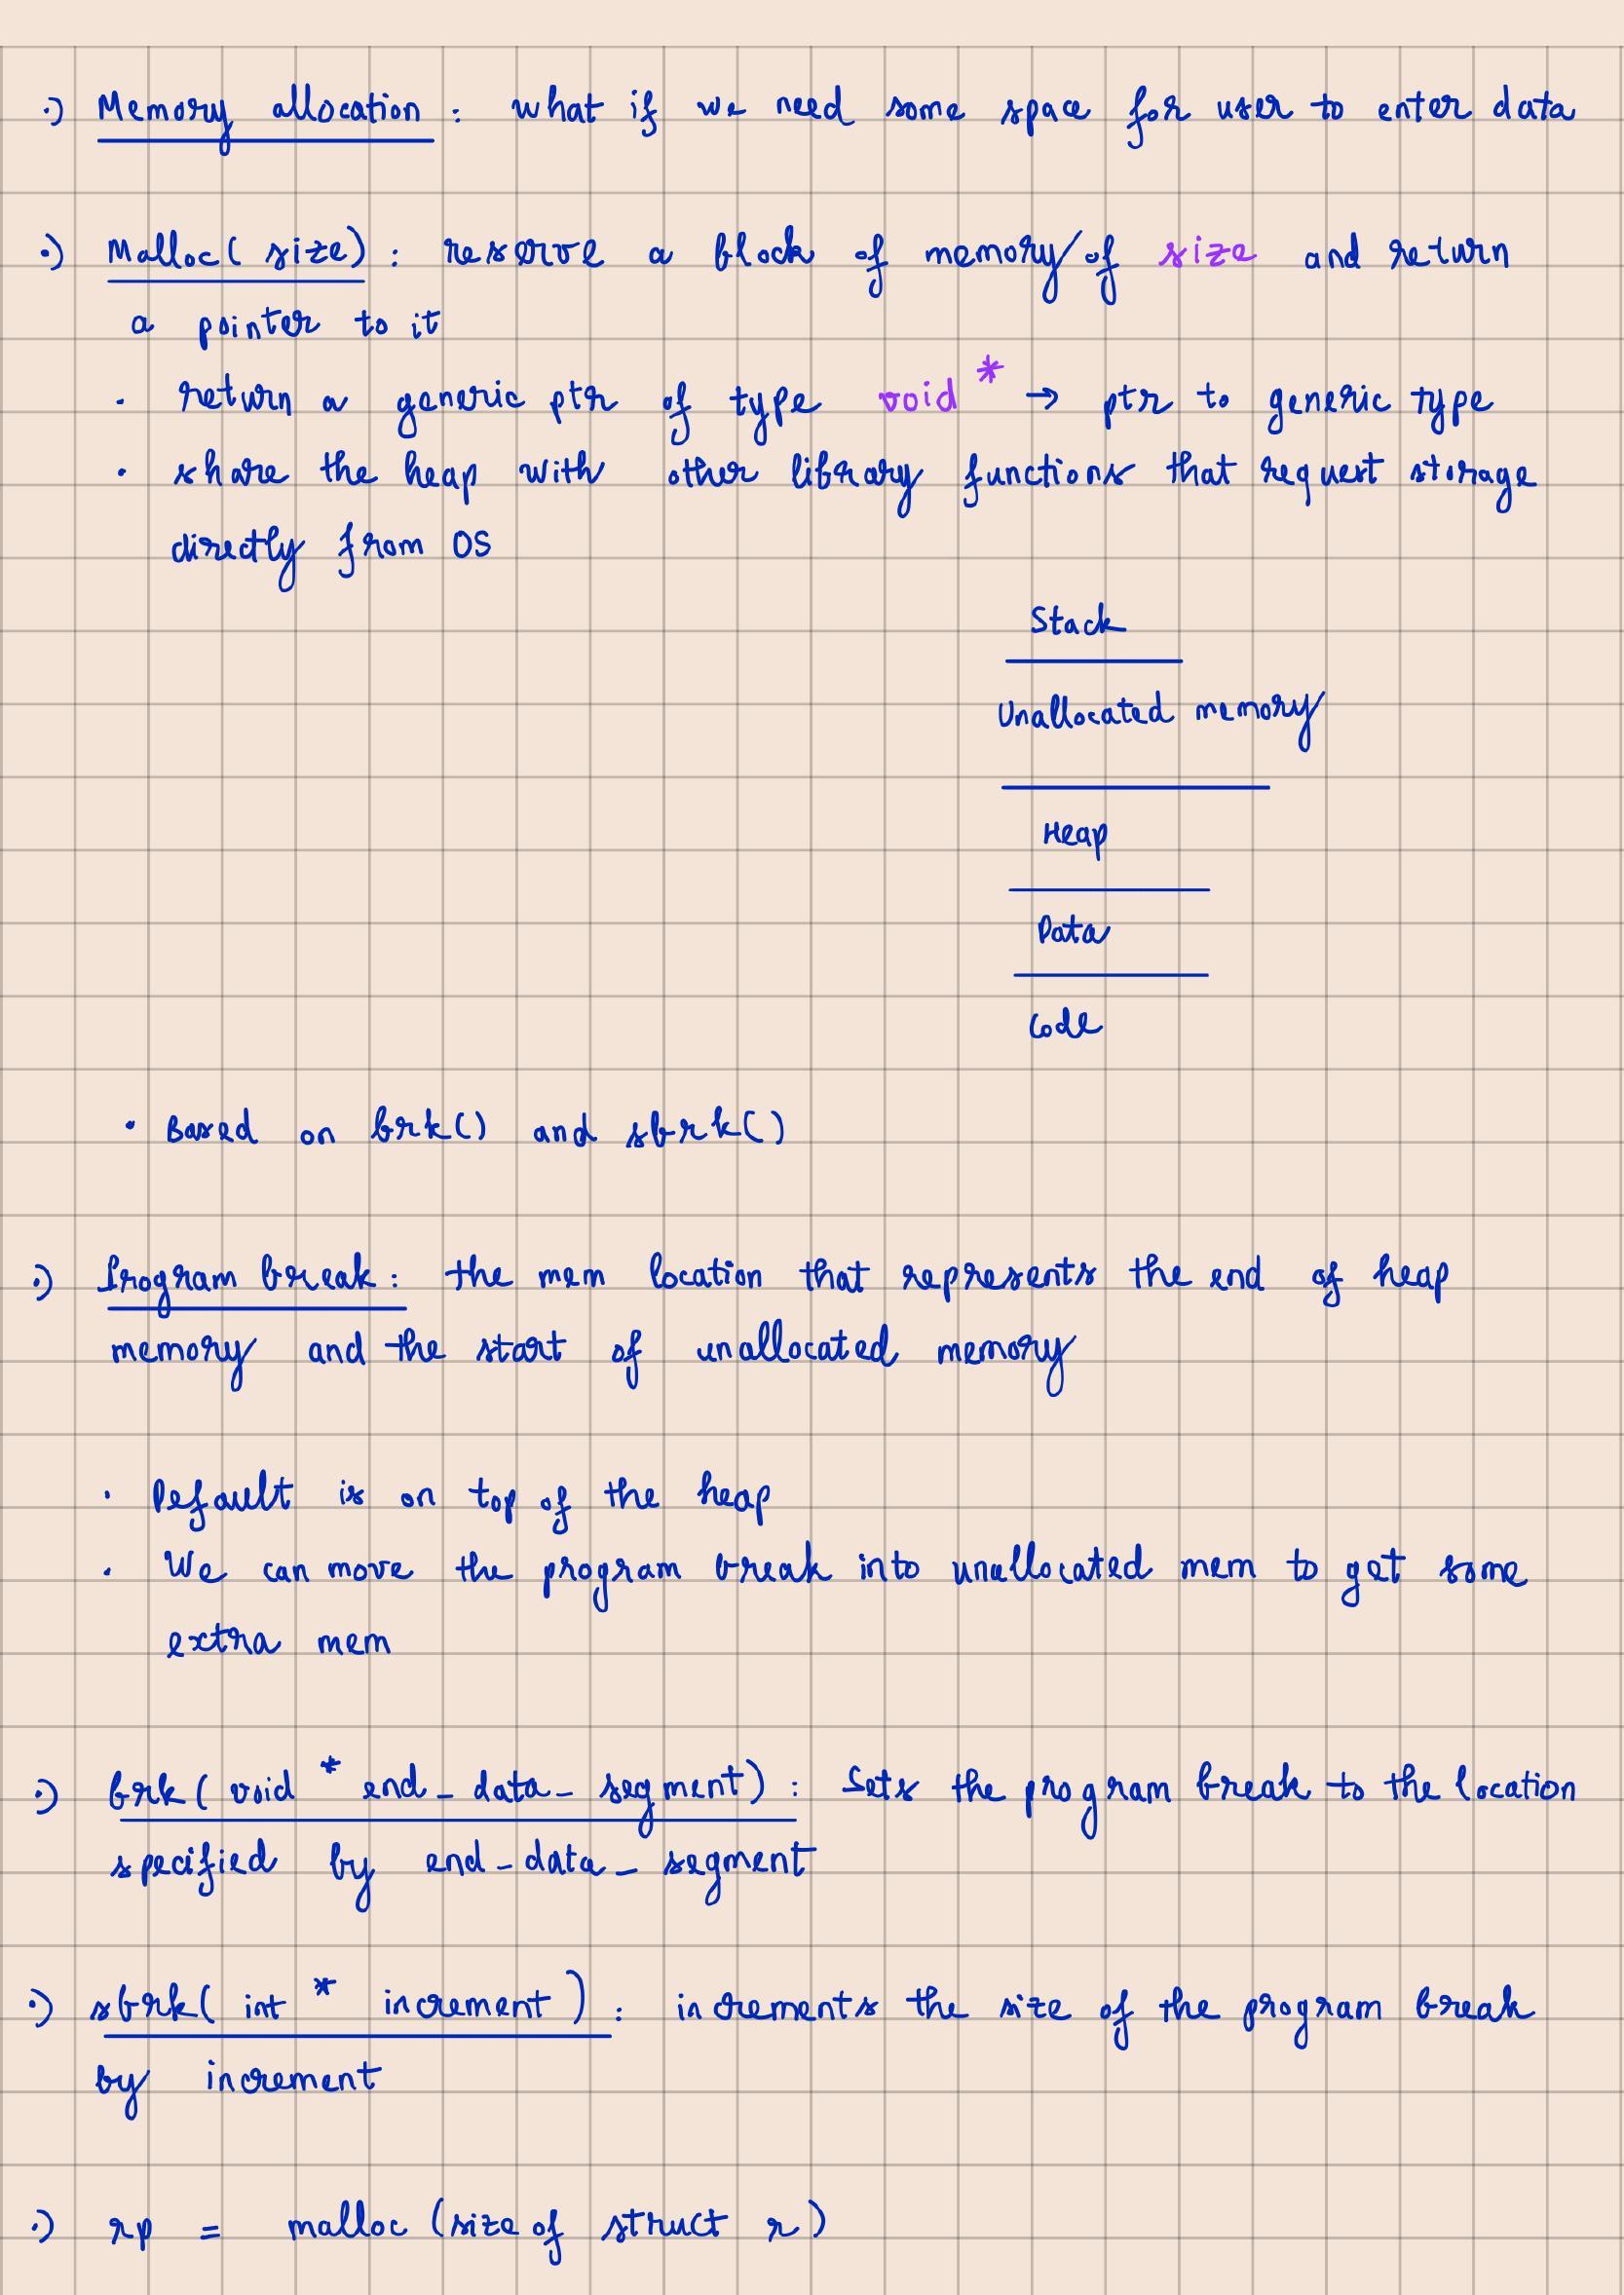 ·) Memory allocation : what if we need some space for user to enter data
·) Malloc( size) : reserve a block of memory of size and return
a pointer to it
· return a generic ptr of type void * → ptr to generic type
· share the heap with other library functions that request storage
directly from OS
Stack
Unallocated memory
Heap
Data
Code
· Based on brk() and sbrk()
·) Program break : the mem location that represents the end of heap
memory and the start of unallocated memory
· Default is on top of the heap
· We can move the program break into unallocated mem to get some
extra mem
·) brk( void * end_data_segment) : Sets the program break to the location
specified by end_data_segment
·) sbrk( int * increment ) : increments the size of the program break
by increment
·) rp = malloc (size of struct r)